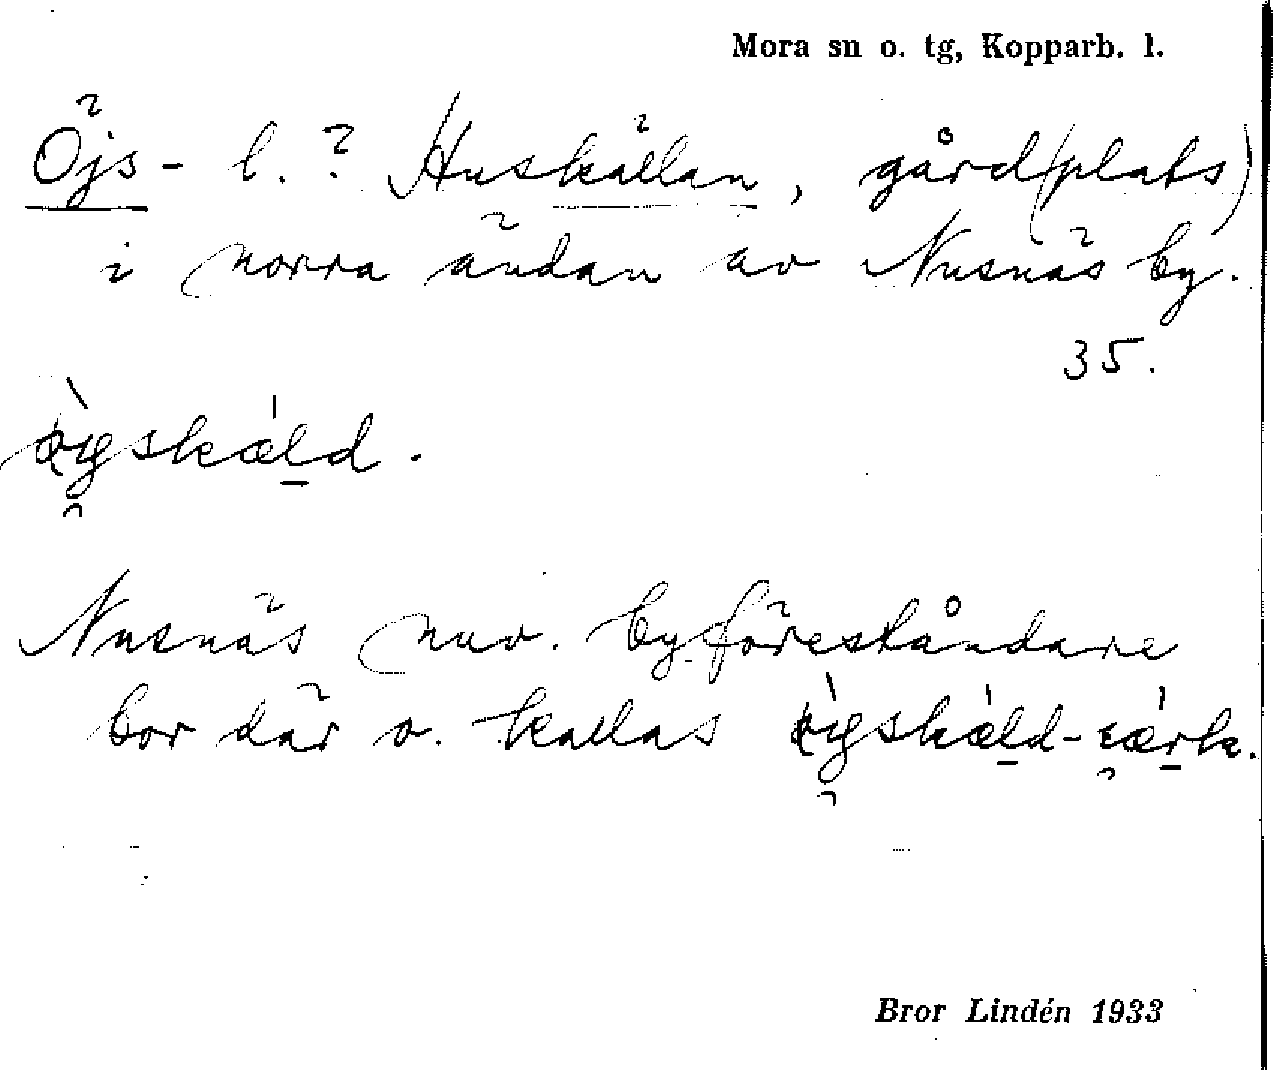 Mora sn o. tg, Kopparb. l.
Öjs- l. ? Huskällan, gård(plats)
i norra ändan av Nusnäs by.
35.
öyskæld.
Nusnäs nuv. byföreståndare
bor där o. kallas öyskæld-
Bror Lindén 1933